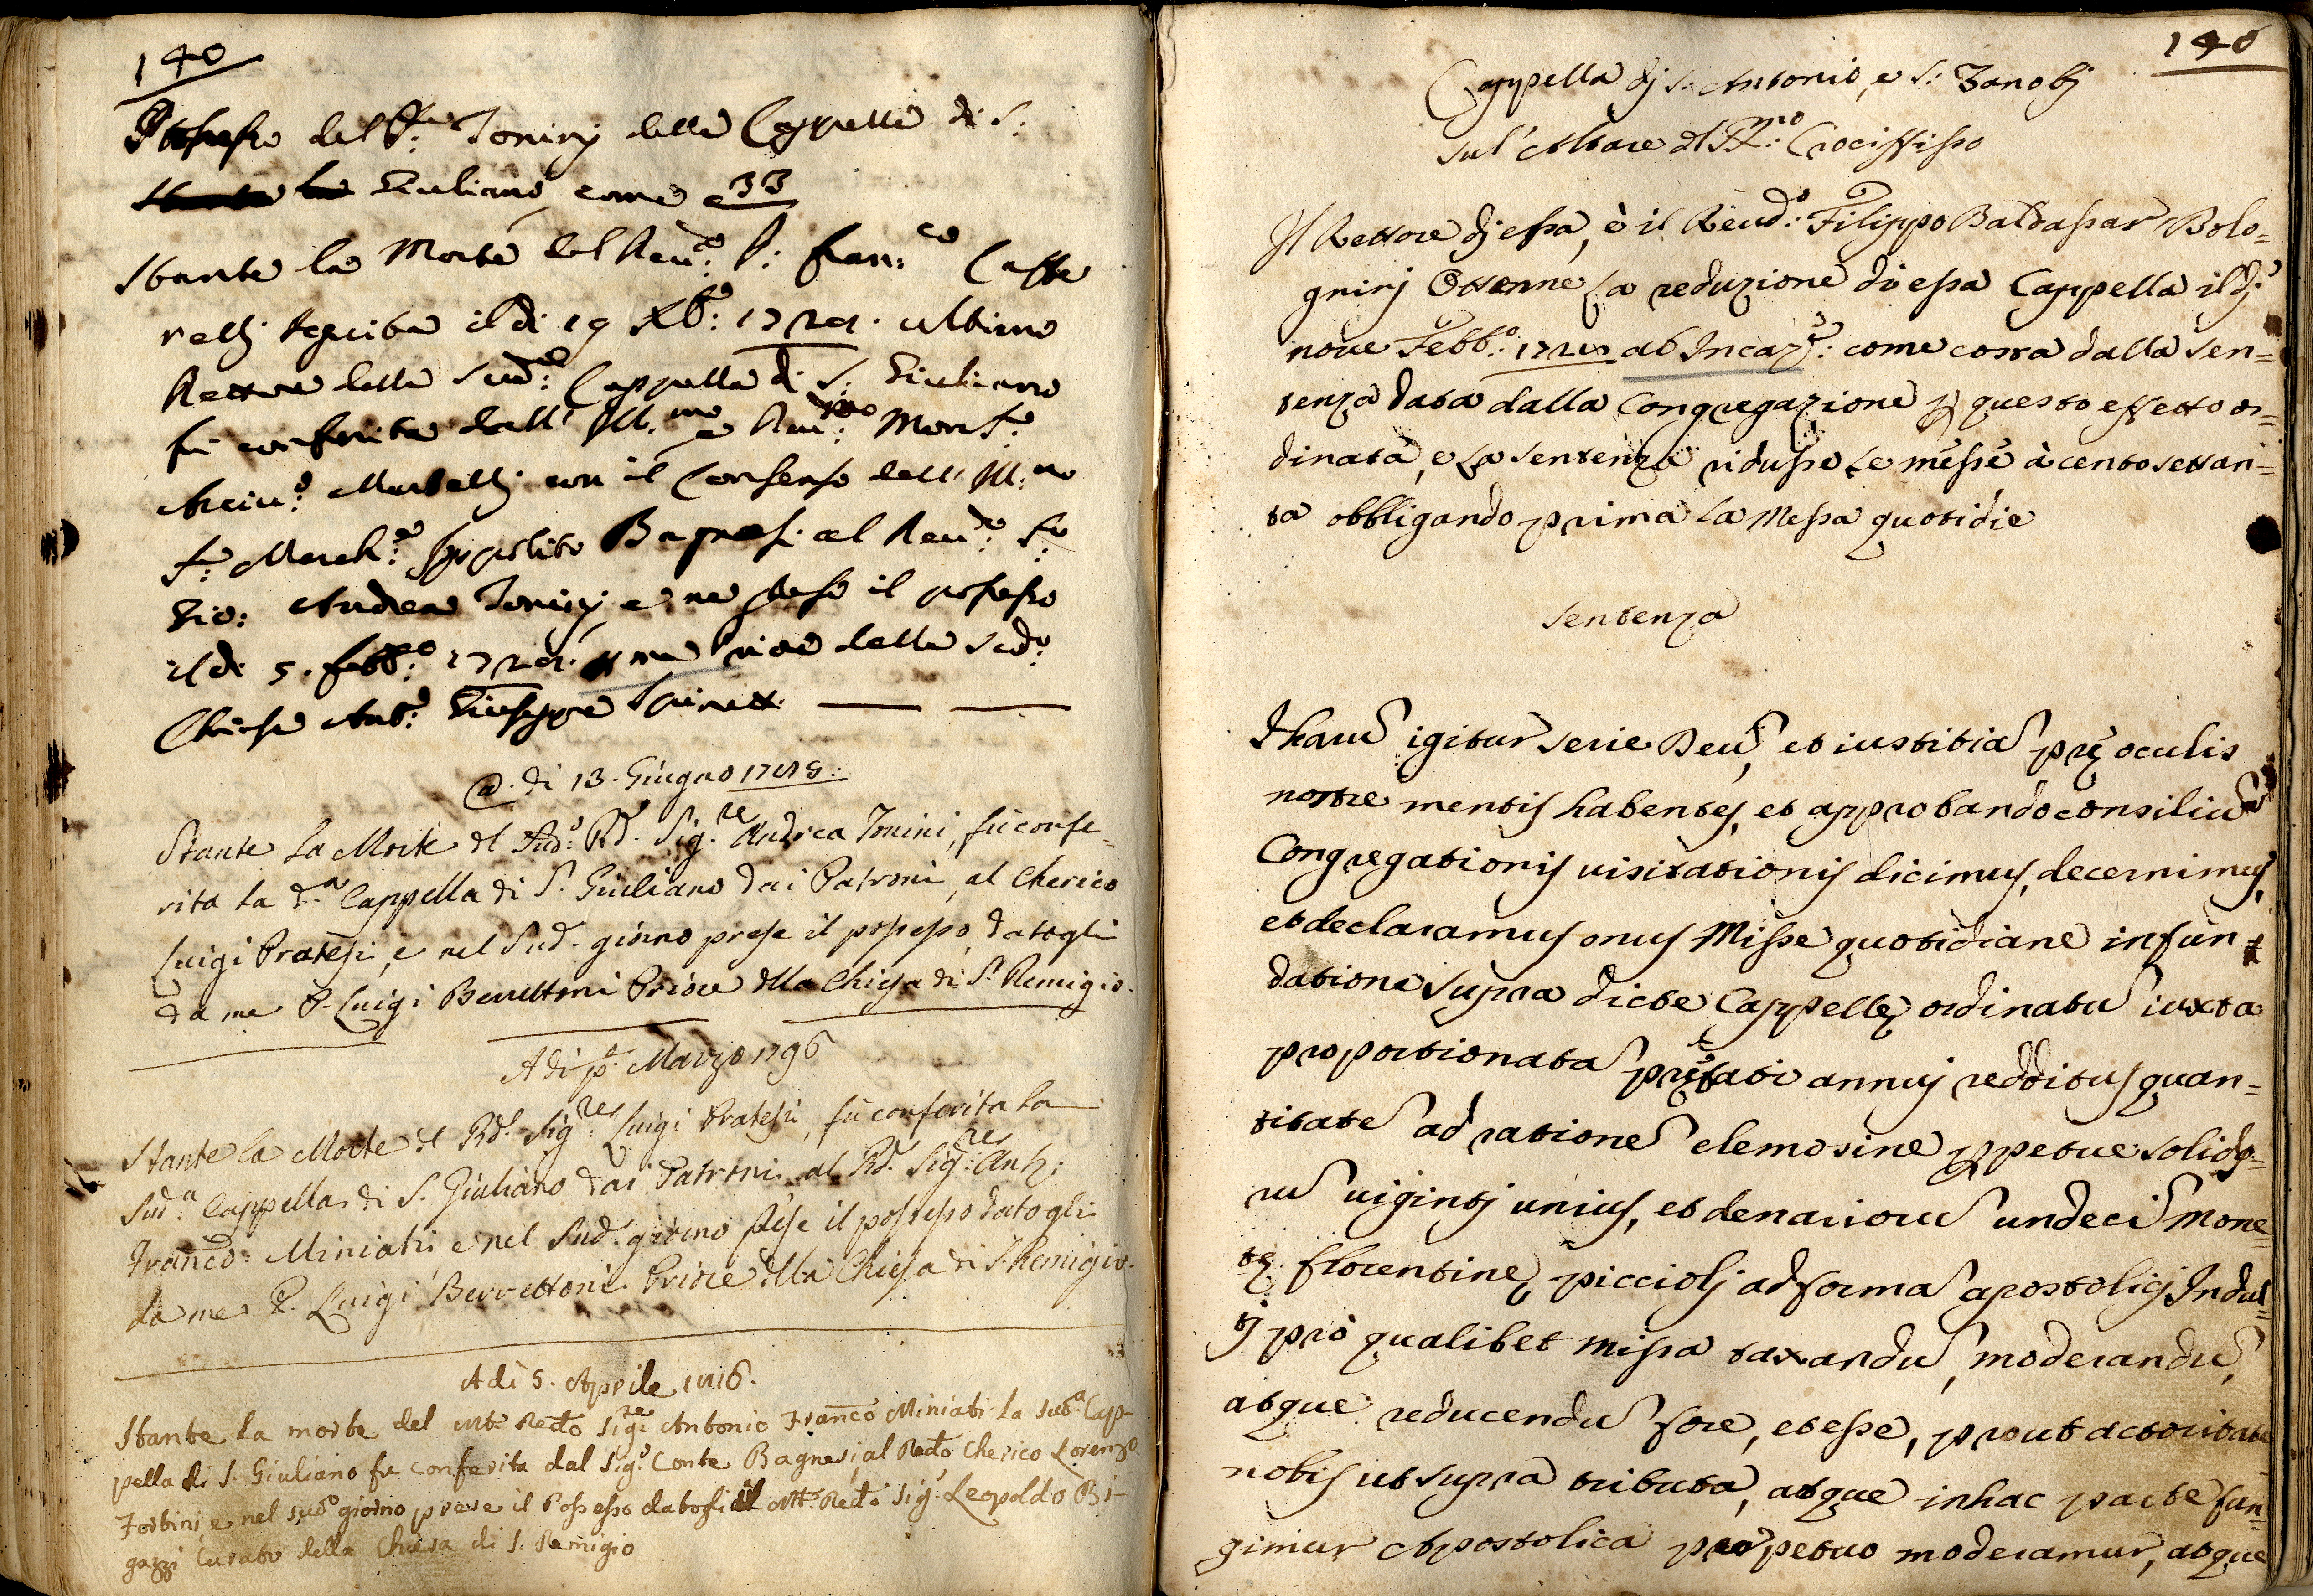 140
Possesso del S.r Tonini della Cappella di S:
Giuliano come a 33
Stante la Morte del Reu:do P: Fran:co Caffe
relli seguita il di 19 Xb:e 172 ultimo
Rettore della Sud:a Cappella di S: Giuliano
fù conferita dall' Ill:mo e Reu:mo Mons:e
Arciu:o Martelli con il Consenso dell' Ill:mo
S:r March:e Ippolito Bagnesi al Reu:do S:r
Gio: Andrea Tonini e ne prese il possesso
il di 5. febb:o 172 della Sud:a
Chiesa Ant:o Giuseppe
@ di 13. Giugno
Stante La Morte dl Rd. Sig:re Andrea Tonini, fù confe=
rita la d.a Cappella di S. Giuliano dai Patroni, al Cherico
Luigi Pratesi, e nel Sud. giorno prese il possesso, datogli
da me P. Luigi Berrettoni Priore dlla Chiesa di S. Remigio.
A di p.o Marzo 1796
Stante la Morte dl Rd. Sig:re Luigi Pratesi, fù conferita la
Sud:a Cappella di S. Giuliano dai Patroni al Rd. Sig:re Ant:
Franco: Miniati, e nel Sud. giorno prese il possesso datogli
da me P. Luigi Berrettoni Priore dlla Chiesa di S. Remigio.
A dì 5. Aprile 1816.
Stante la morte del Mto Redo Sig:re Antonio Franco Miniati la sud:a Cap-
pella di S. Giuliano fu conferita dal Sig:e Conte Bagnesi, al Redo Cherico Lorenzo
Fortini e nel sudo giorno prese il Possesso datogli dal Mto Redo Sig:e Leopoldo Bi-
gazzi Curato della Chiesa di S. Remigio
140
Cappella dj S: Antonio, e S: Zanobj
Sul' Altare dl SS:mo Crocifisso
Il Rettore dj essa, è il Reud:o Filippo Baldassar Bolo=
gninj Ottenne La reduzione di essa Cappella il dj
noue Febb:o 172 ab Incar:e come costa dalla Sen=
tenza data dalla Congregazione p questo effetto or=
dinata, e La Sentenza ridusse Le messe à cento settan=
ta obbligando prima La Messa quotidie
Sentenza
igitur serie Deũ, et iustitiã prę oculis
nostre mentis habentes, et approbando consiliũ
Congregationis uisitationis dicimus, decernimus,
et declaramus onus Misse quotidiane in fun=
datione supra dicte Cappellę ordinatũ iuxta
proportionatã prefati annuj redditus quan=
titatẽ ad rationẽ elemosine ppetue solido=
rũ uigintj unius, et denariorũ undecĩ Mone=
tę florentinę picciolj ad formã apostolicj Indul=
tj pro qualibet Missa taxandũ, moderandũ,
atque reducendũ fore, et esse, prout actoritate
nobis ut supra tributa, atque in hac parte fun=
gimur Apostolica perpetuo moderamur, atque